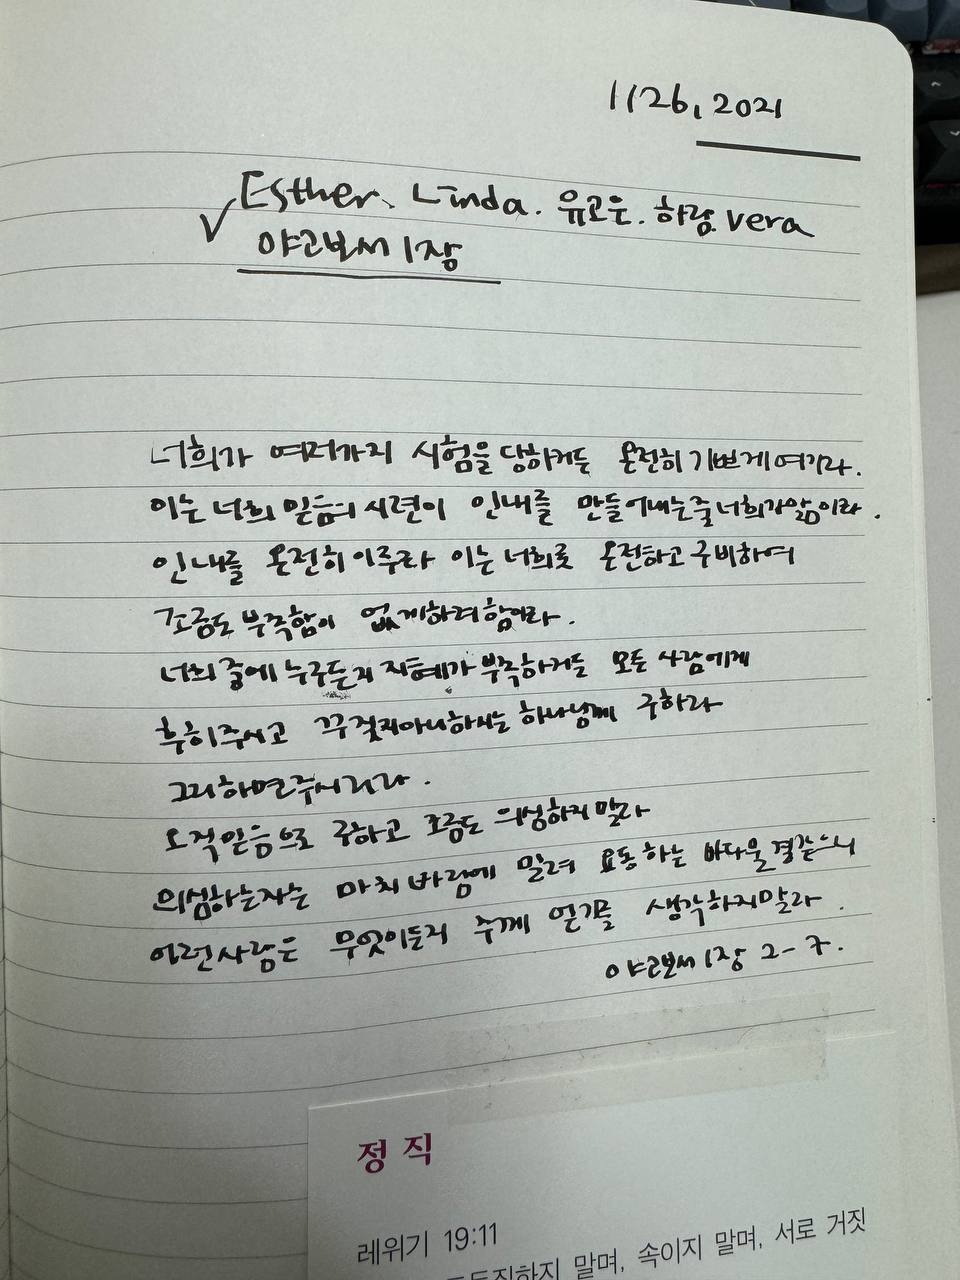 1/26, 2021
Esther. Linda. 유고운. 하람. vera
야고보서 1장
너희가 여러가지 시험을 당하거든 온전히 기쁘게 여기라.
이는 너희 믿음의 시련이 인내를 만들어내는줄 너희가 앎이라.
인내를 온전히 이루라 이는 너희로 온전하고 구비하여
조금도 부족함이 없게하려함이라.
너희 중에 누구든지 지혜가 부족하거든 모든 사람에게
후히 주시고 꾸짖지아니하시는 하나님께 구하라
그리하면 주시리라.
오직 믿음으로 구하고 조금도 의심하지 말라
의심하는자는 마치 바람에 밀려 요동하는 바다물결같으니
이런사람은 무엇이든지 주께 얻기를 생각하지말라.
야고보서 1장 2-7.
정직
레위기 19:11
말며, 속이지 말며, 서로 거짓